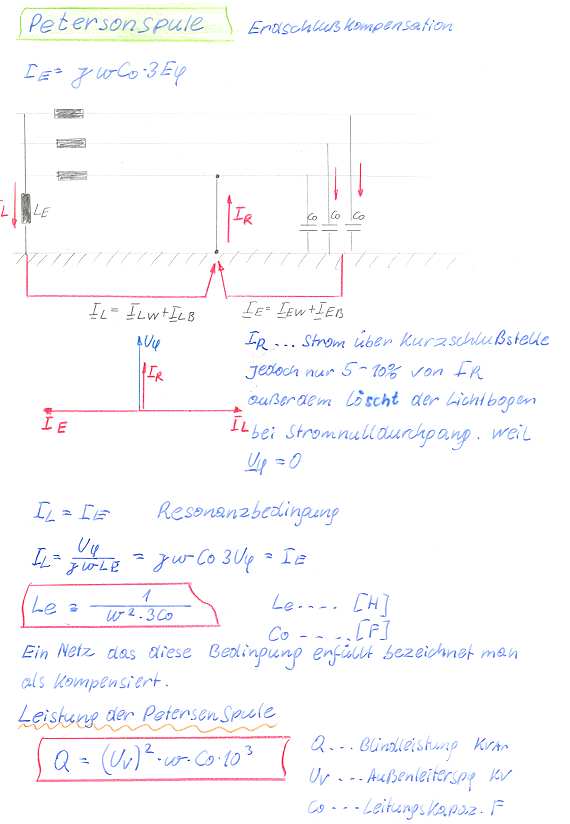 Petersonspule Erdschlußkompensation
I_E = jωC₀·3Eφ
I_L L_E I_R C₀ C₀ C₀
I_L = I_LW + I_LB I_E = I_EW + I_EB
Uφ
I_R
I_E I_L
I_R ... Strom über Kurzschlußstelle
jedoch nur 5-10% von I_R
außerdem löscht der Lichtbogen
bei Stromnulldurchgang. weil
Uφ = 0
I_L = I_E Resonanzbedingung
I_L = Uφ / jωL_E = jωC₀3Uφ = I_E
Le = 1 / ω²·3C₀ Le .... [H]
C₀ ..... [F]
Ein Netz das diese Bedingung erfüllt bezeichnet man
als kompensiert.
Leistung der Petersenspule
Q = (Uv)²·ω·C₀·10³
Q ... Blindleistung KVAr
Uv ... Außenleiterspg KV
C₀ ... Leitungskapaz. F